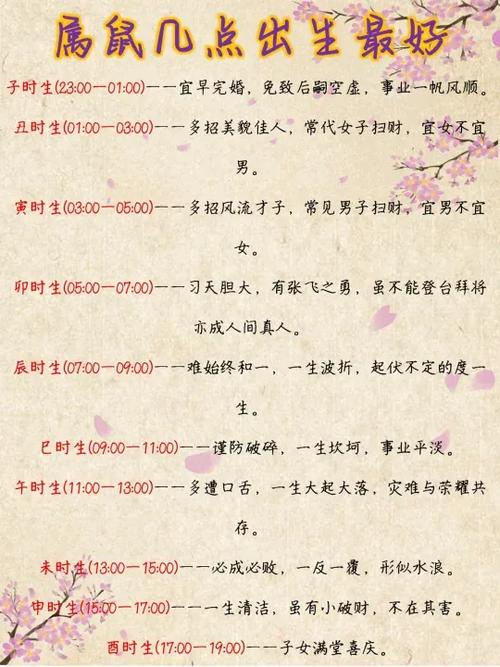 属鼠几点出生最好
子时生(23:00—01:00)——宜早完婚，免致后嗣空虚，事业一帆风顺。
丑时生(01:00—03:00)——多招美貌佳人，常代女子扫财，宜女不宜
男。
寅时生(03:00—05:00)——多招风流才子，常见男子扫财，宜男不宜
女。
卯时生(05:00—07:00)——习天胆大，有张飞之勇，虽不能登台拜将
亦成人间真人。
辰时生(07:00—09:00)——难始终和一，一生波折，起伏不定的度一
生。
巳时生(09:00—11:00)——谨防破碎，一生坎坷，事业平淡。
午时生(11:00—13:00)——多遭口舌，一生大起大落，灾难与荣耀共
存。
未时生(13:00—15:00)——必成必败，一反一覆，形似水浪。
申时生(15:00—17:00)——一生清洁，虽有小破财，不在其害。
酉时生(17:00—19:00)——子女满堂喜庆。